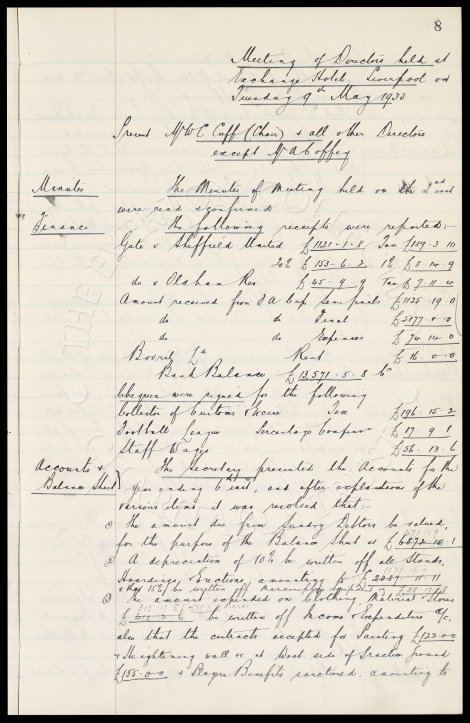 8
Meeting of Directors held at
Exchange Hotel. Liverpool on
Tuesday 9th May 1933
Present Mr W C Cuff (Chair) & all other Directors
except Mr A Coffey
Minutes The Minutes of Meeting held on the 2nd inst
were read & confirmed
Finance The following receipts were reported:-
Gate v Sheffield United £1121-1-8 Tax £189-3-10
20% £153-6-2 1% £8-14-9
do v Oldham Res £45-9-9 Tax £7-11-4
Amount received from F A Cup semi finals £1135-19-0
do do Final £5177-0-0
do do Expenses £74-14-0
Bovril Ld Rent £16-0-0
Bank Balance £13571-5-8 Cr
Cheques were signed for the following
Collector of Customs & Excise Tax £196-15-2
Football League Percentage Comp £17-9-1
Staff Wages £56-13-6
Accounts & Balance Sheet The secretary presented the Accounts for the
year ending 6th inst, and after explanations of the
various items, it was resolved that:-
① The amount due from Sundry Debtors be valued,
for the purpose of the Balance Sheet at £6872-15-1
② A depreciation of 10% be written off all Stands,
Hoardings, Erections amounting to £2087-11-11
& that 15% be written off
③ The amount expended on Clothing, Material & Stores
be written off Income & Expenditure A/c.
also that the contracts accepted for Painting £122.0.0
& Heightening wall at West side of Practice Ground
£155-0-0 & Players Benefits sanctioned, amounting to